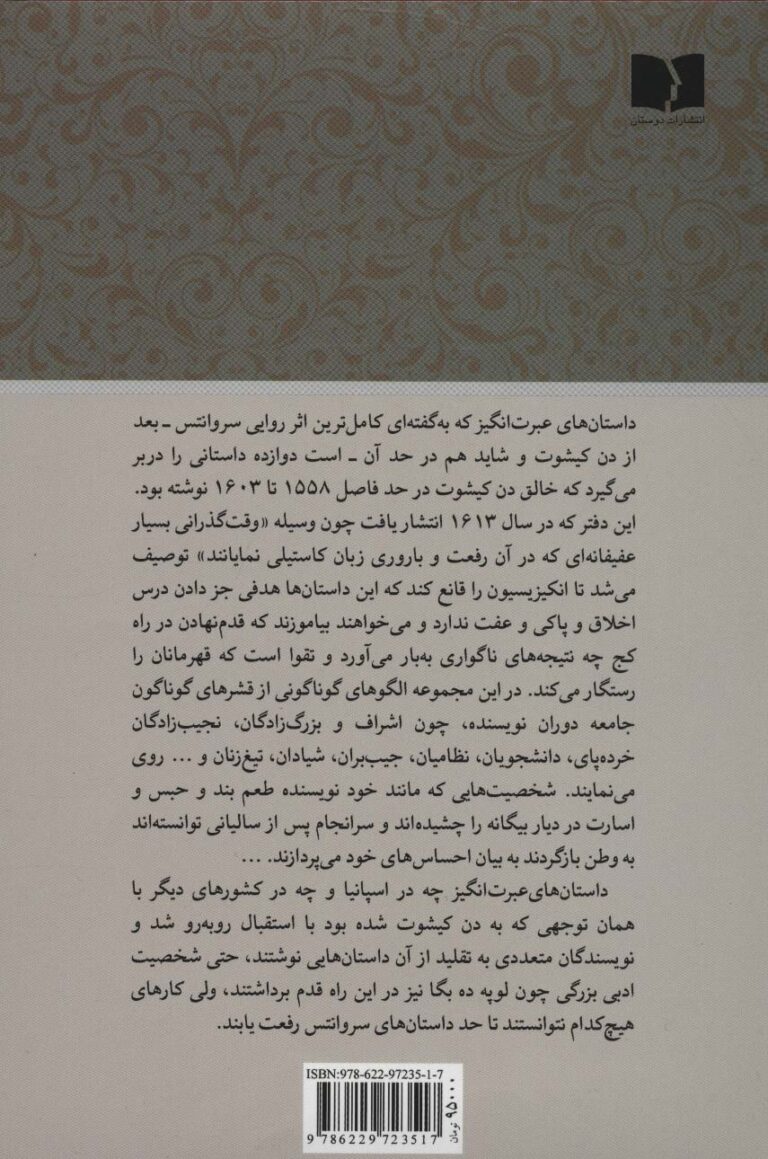 انتشارات دوستان
داستان‌های عبرت‌انگیز که به‌گفته‌ای کامل‌ترین اثر روایی سروانتس ـ بعد
از دن کیشوت و شاید هم در حد آن ـ است دوازده داستانی را دربر
می‌گیرد که خالق دن کیشوت در حد فاصل ۱۵۵۸ تا ۱۶۰۳ نوشته بود.
این دفتر که در سال ۱۶۱۳ انتشار یافت چون وسیله «وقت‌گذرانی بسیار
عفیفانه‌ای که در آن رفعت و باروری زبان کاستیلی نمایانند» توصیف
می‌شد تا انکیزیسیون را قانع کند که این داستان‌ها هدفی جز دادن درس
اخلاق و پاکی و عفت ندارد و می‌خواهند بیاموزند که قدم‌نهادن در راه
کج چه نتیجه‌های ناگواری به‌بار می‌آورد و تقوا است که قهرمانان را
رستگار می‌کند. در این مجموعه الگوهای گوناگونی از قشرهای گوناگون
جامعه دوران نویسنده، چون اشراف و بزرگ‌زادگان، نجیب‌زادگان
خرده‌پای، دانشجویان، نظامیان، جیب‌بران، شیادان، تیغ‌زنان و ... روی
می‌نمایند. شخصیت‌هایی که مانند خود نویسنده طعم بند و حبس و
اسارت در دیار بیگانه را چشیده‌اند و سرانجام پس از سالیانی توانسته‌اند
به وطن بازگردند به بیان احساس‌های خود می‌پردازند. ...
داستان‌های‌عبرت‌انگیز چه در اسپانیا و چه در کشورهای دیگر با
همان توجهی که به دن کیشوت شده بود با استقبال روبه‌رو شد و
نویسندگان متعددی به تقلید از آن داستان‌هایی نوشتند، حتی شخصیت
ادبی بزرگی چون لوپه ده بگا نیز در این راه قدم برداشتند، ولی کارهای
هیچ‌کدام نتوانستند تا حد داستان‌های سروانتس رفعت یابند.
ISBN:978-622-97235-1-7
۹۵۰۰۰ تومان
9 786229 723517